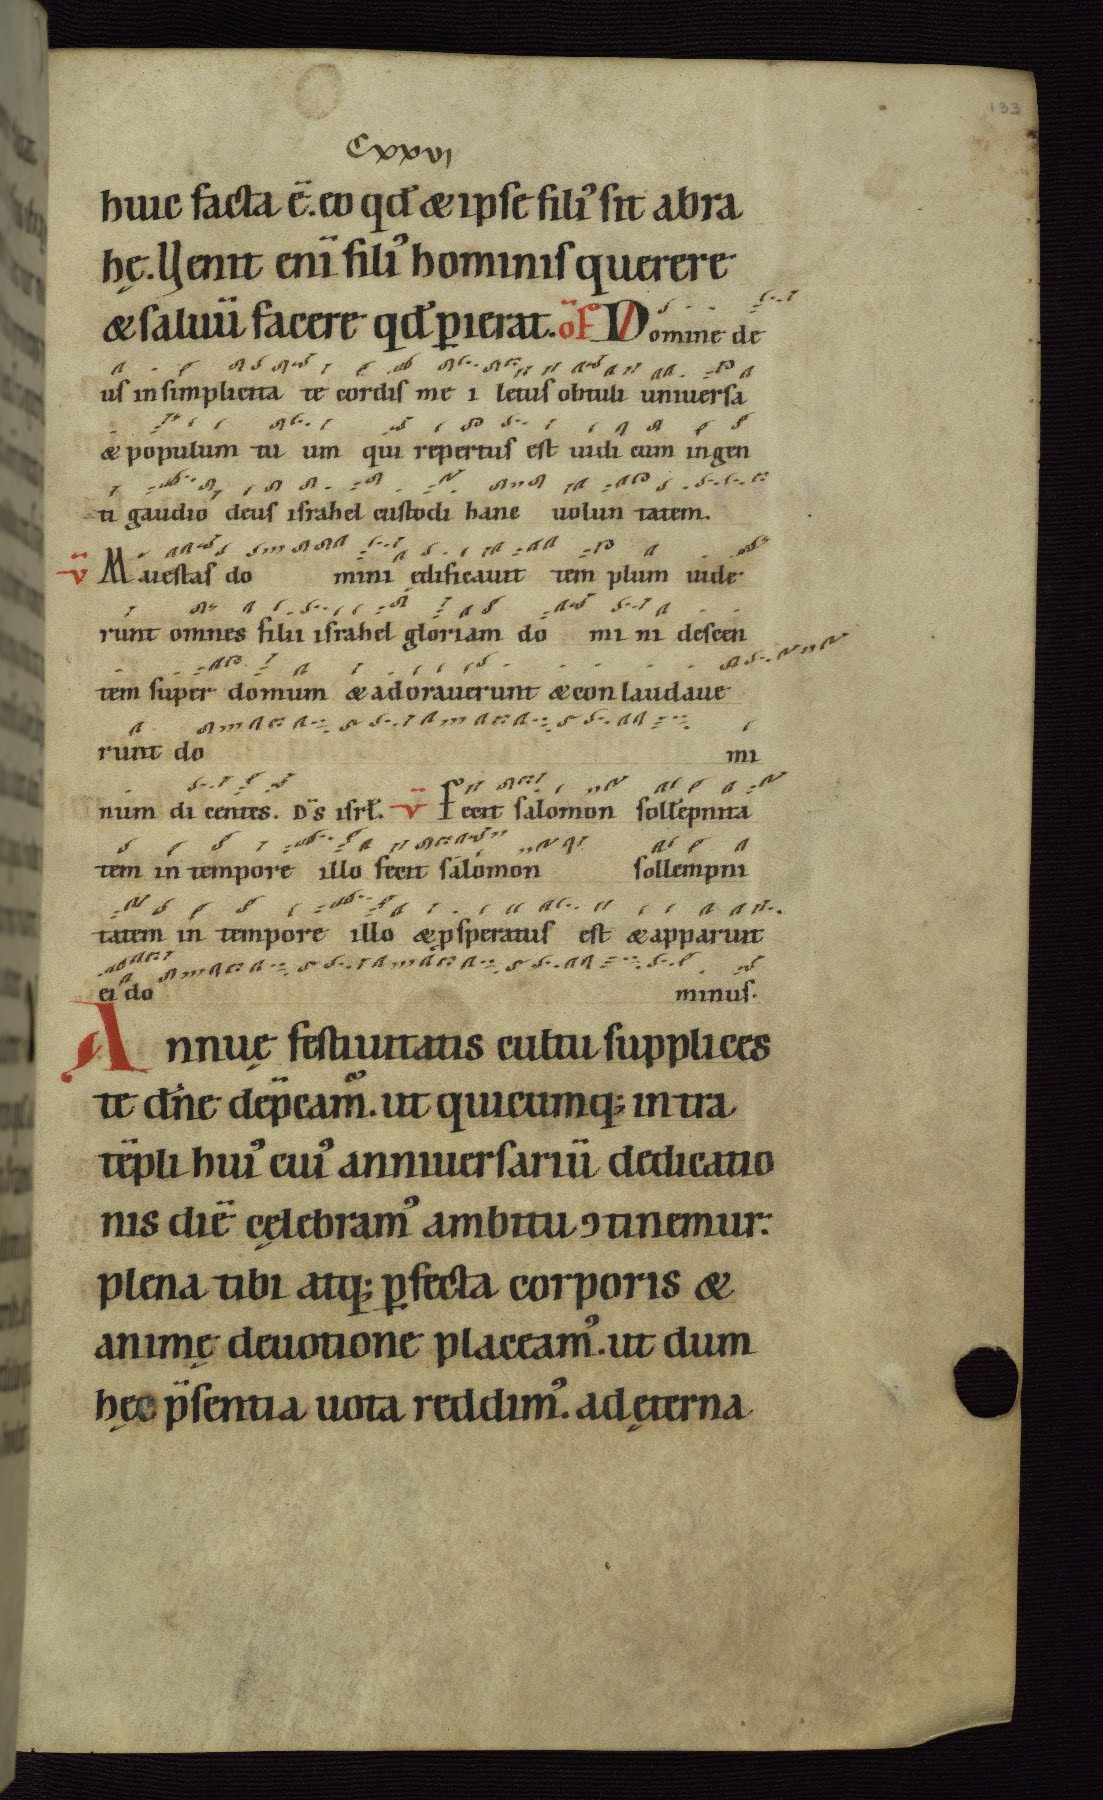 133
Cxxvi
huic facta ē. eo qđ & ipse fili᾽ sit abra
hę. Uenit enī fili᾽ hominis querere
& saluū facere qđ ꝑierat. of̄ Domine de
us in simplicita te cordis me i letus obtuli uniuersa
& populum tu um qui repertus est uidi eum ingen
ti gaudio deus israhel custodi hanc uolun tatem.
v̄ Maiestas do mini ędificauit tem plum uide
runt omnes filii israhel gloriam do mi ni descen
tem super domum & adorauerunt & con laudaue
runt do mi
num di centes. D̄s isrł. v̄ Fecit salomon sollepnita
tem in tempore illo fecit salomon sollempni
tatem in tempore illo & ꝓsperatus est & apparuit
ei do minus.
Annuę festiuitatis cultu supplices
te dn̄e dep̄cam᾽. ut quicumq; intra
tēpli hui᾽ cui᾽ anniuersariū dedicatio
nis diē cęlebram᾽ ambitu ꝯtinemur:
plena tibi atq; ꝑfecta corporis &
animę deuotione placeam᾽. ut dum
hęc p̄sentia uota reddim᾽. ad ęterna